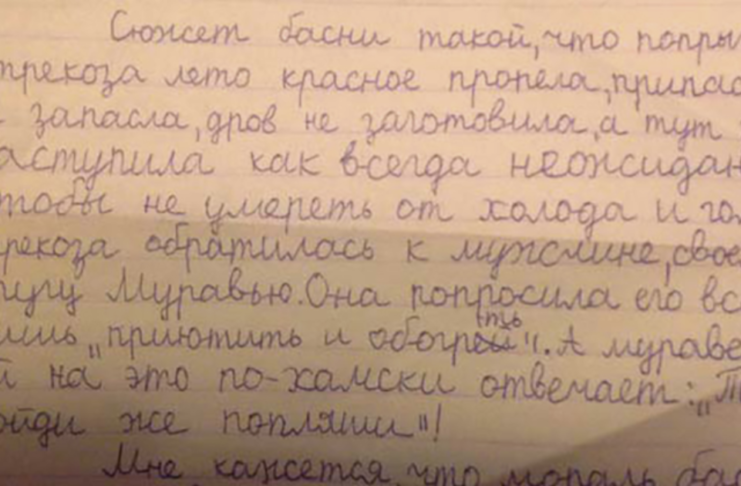 Сюжет басни такой, что попры
трекоза лето красное пропела, припас
запасла, дров не заготовила, а тут
аступила как всегда неожидан
тобы не умереть от холода и гол
рекоза обратилась к мужчине, свое
ругу Муравью. Она попросила его вс
ишь „приютить и обогреть". А мураве
й на это по-хамски отвечает: „Т
ойди же попляши"!
Мне кажется, что мораль бас